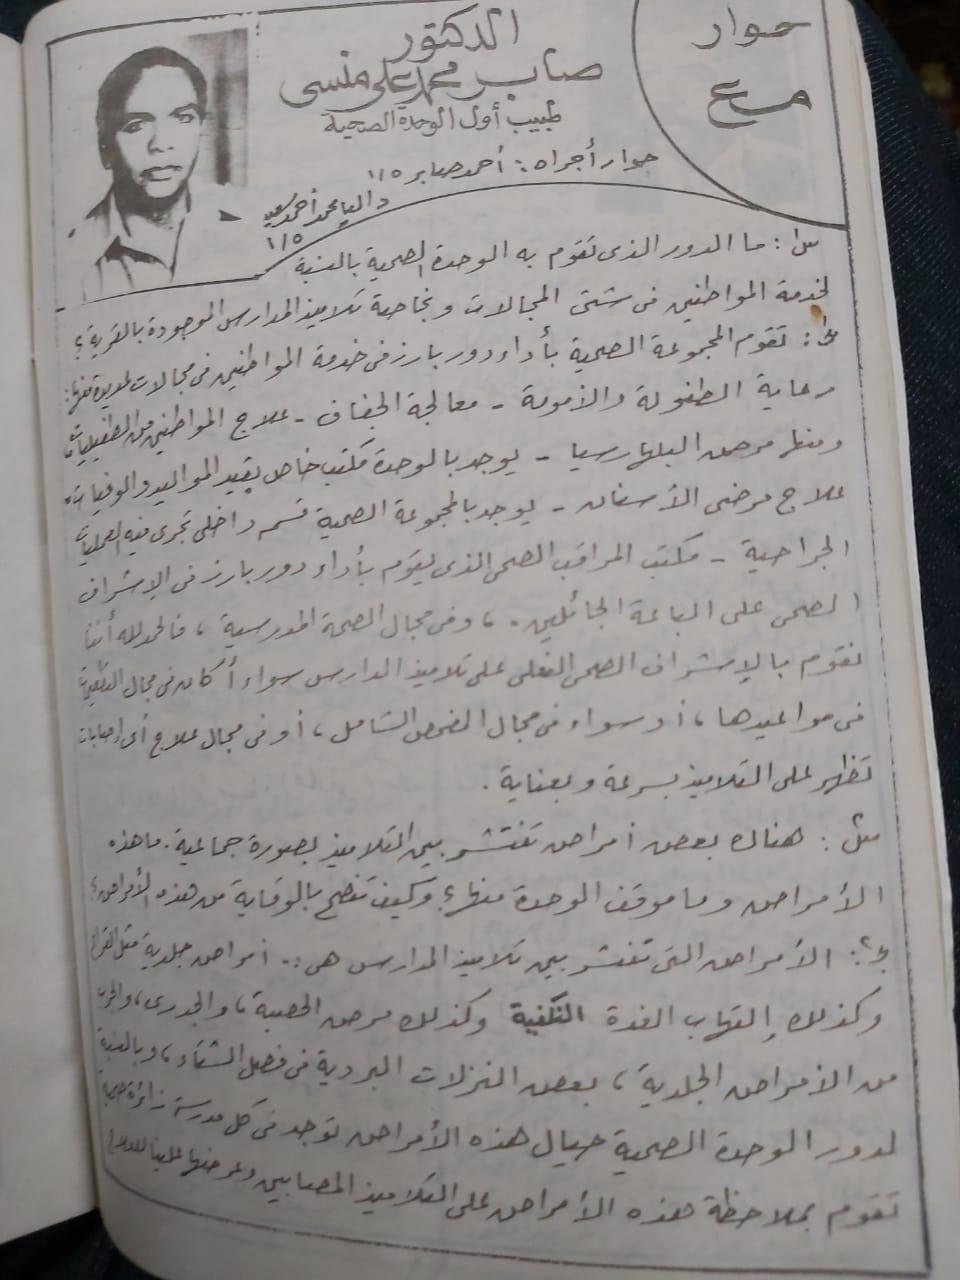 حوار
مع
الدكتور
صابر محمد على منسى
طبيب أول الوحدة الصحية
حوار أجراه : أحمد صابر ١/٥
داليا محمد أحمد سعيد
١/٥
س١ : ما الدور الذى تقوم به الوحدة الصحية بالنسبة
لخدمة المواطنين فى شتى المجالات وبخاصة تلاميذ المدارس الموجودة بالقرية ؟
جـ١ : تقوم المجموعة الصحية بأداء دور بارز فى خدمة المواطنين فى مجالات عديدة منها :
رعاية الطفولة والأمومة - معالجة الجفاف - علاج المواطنين من الطفيليات
ومنها مرض البلهارسيا - يوجد بالوحدة مكتب خاص بقيد المواليد والوفيات .
علاج مرضى الأسنان - يوجد بالمجموعة الصحية قسم داخلى تجرى فيه العمليات
الجراحية - مكتب المراقب الصحى الذى يقوم بأداء دور بارز فى الإشراف
الصحى على الباعة الجائلين . ، وفى مجال الصحة المدرسية ، فالحمد لله أننا
نقوم بالإشراف الصحى الفعلى على تلاميذ المدارس سواء أكان فى مجال التطعيمات
فى مواعيدها ، أو سواء فى مجال الفحص الشامل ، أو فى مجال علاج أى إصابات
تظهر على التلاميذ بسرعة وبعناية .
س٢ : هناك بعض أمراض تنتشر بين التلاميذ بصورة جماعية . ما هذه
الأمراض وما موقف الوحدة منها ؟ وكيف تنصح بالوقاية من هذه الأمراض ؟
جـ٢ : الأمراض التى تنتشر بين تلاميذ المدارس هى :- أمراض جلدية مثل القراع
وكذلك إلتهاب الغدة النكفية وكذلك مرض الحصبة ، والجدرى ، والجرب
من الأمراض الجلدية ، بعض النزلات البردية فى فصل الشتاء ، وبالنسبة
لدور الوحدة الصحية حيال هذه الأمراض توجد فى كل مدرسة زائرة صحية
تقوم بملاحظة هذه الأمراض على التلاميذ المصابين وعرضها علينا للعلاج